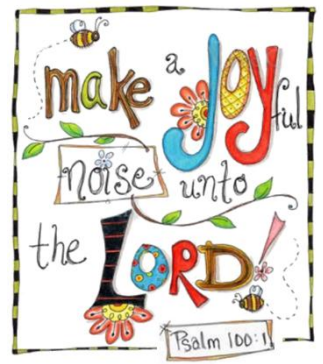 make a JOYful
noise unto
the LORD!
Psalm 100:1